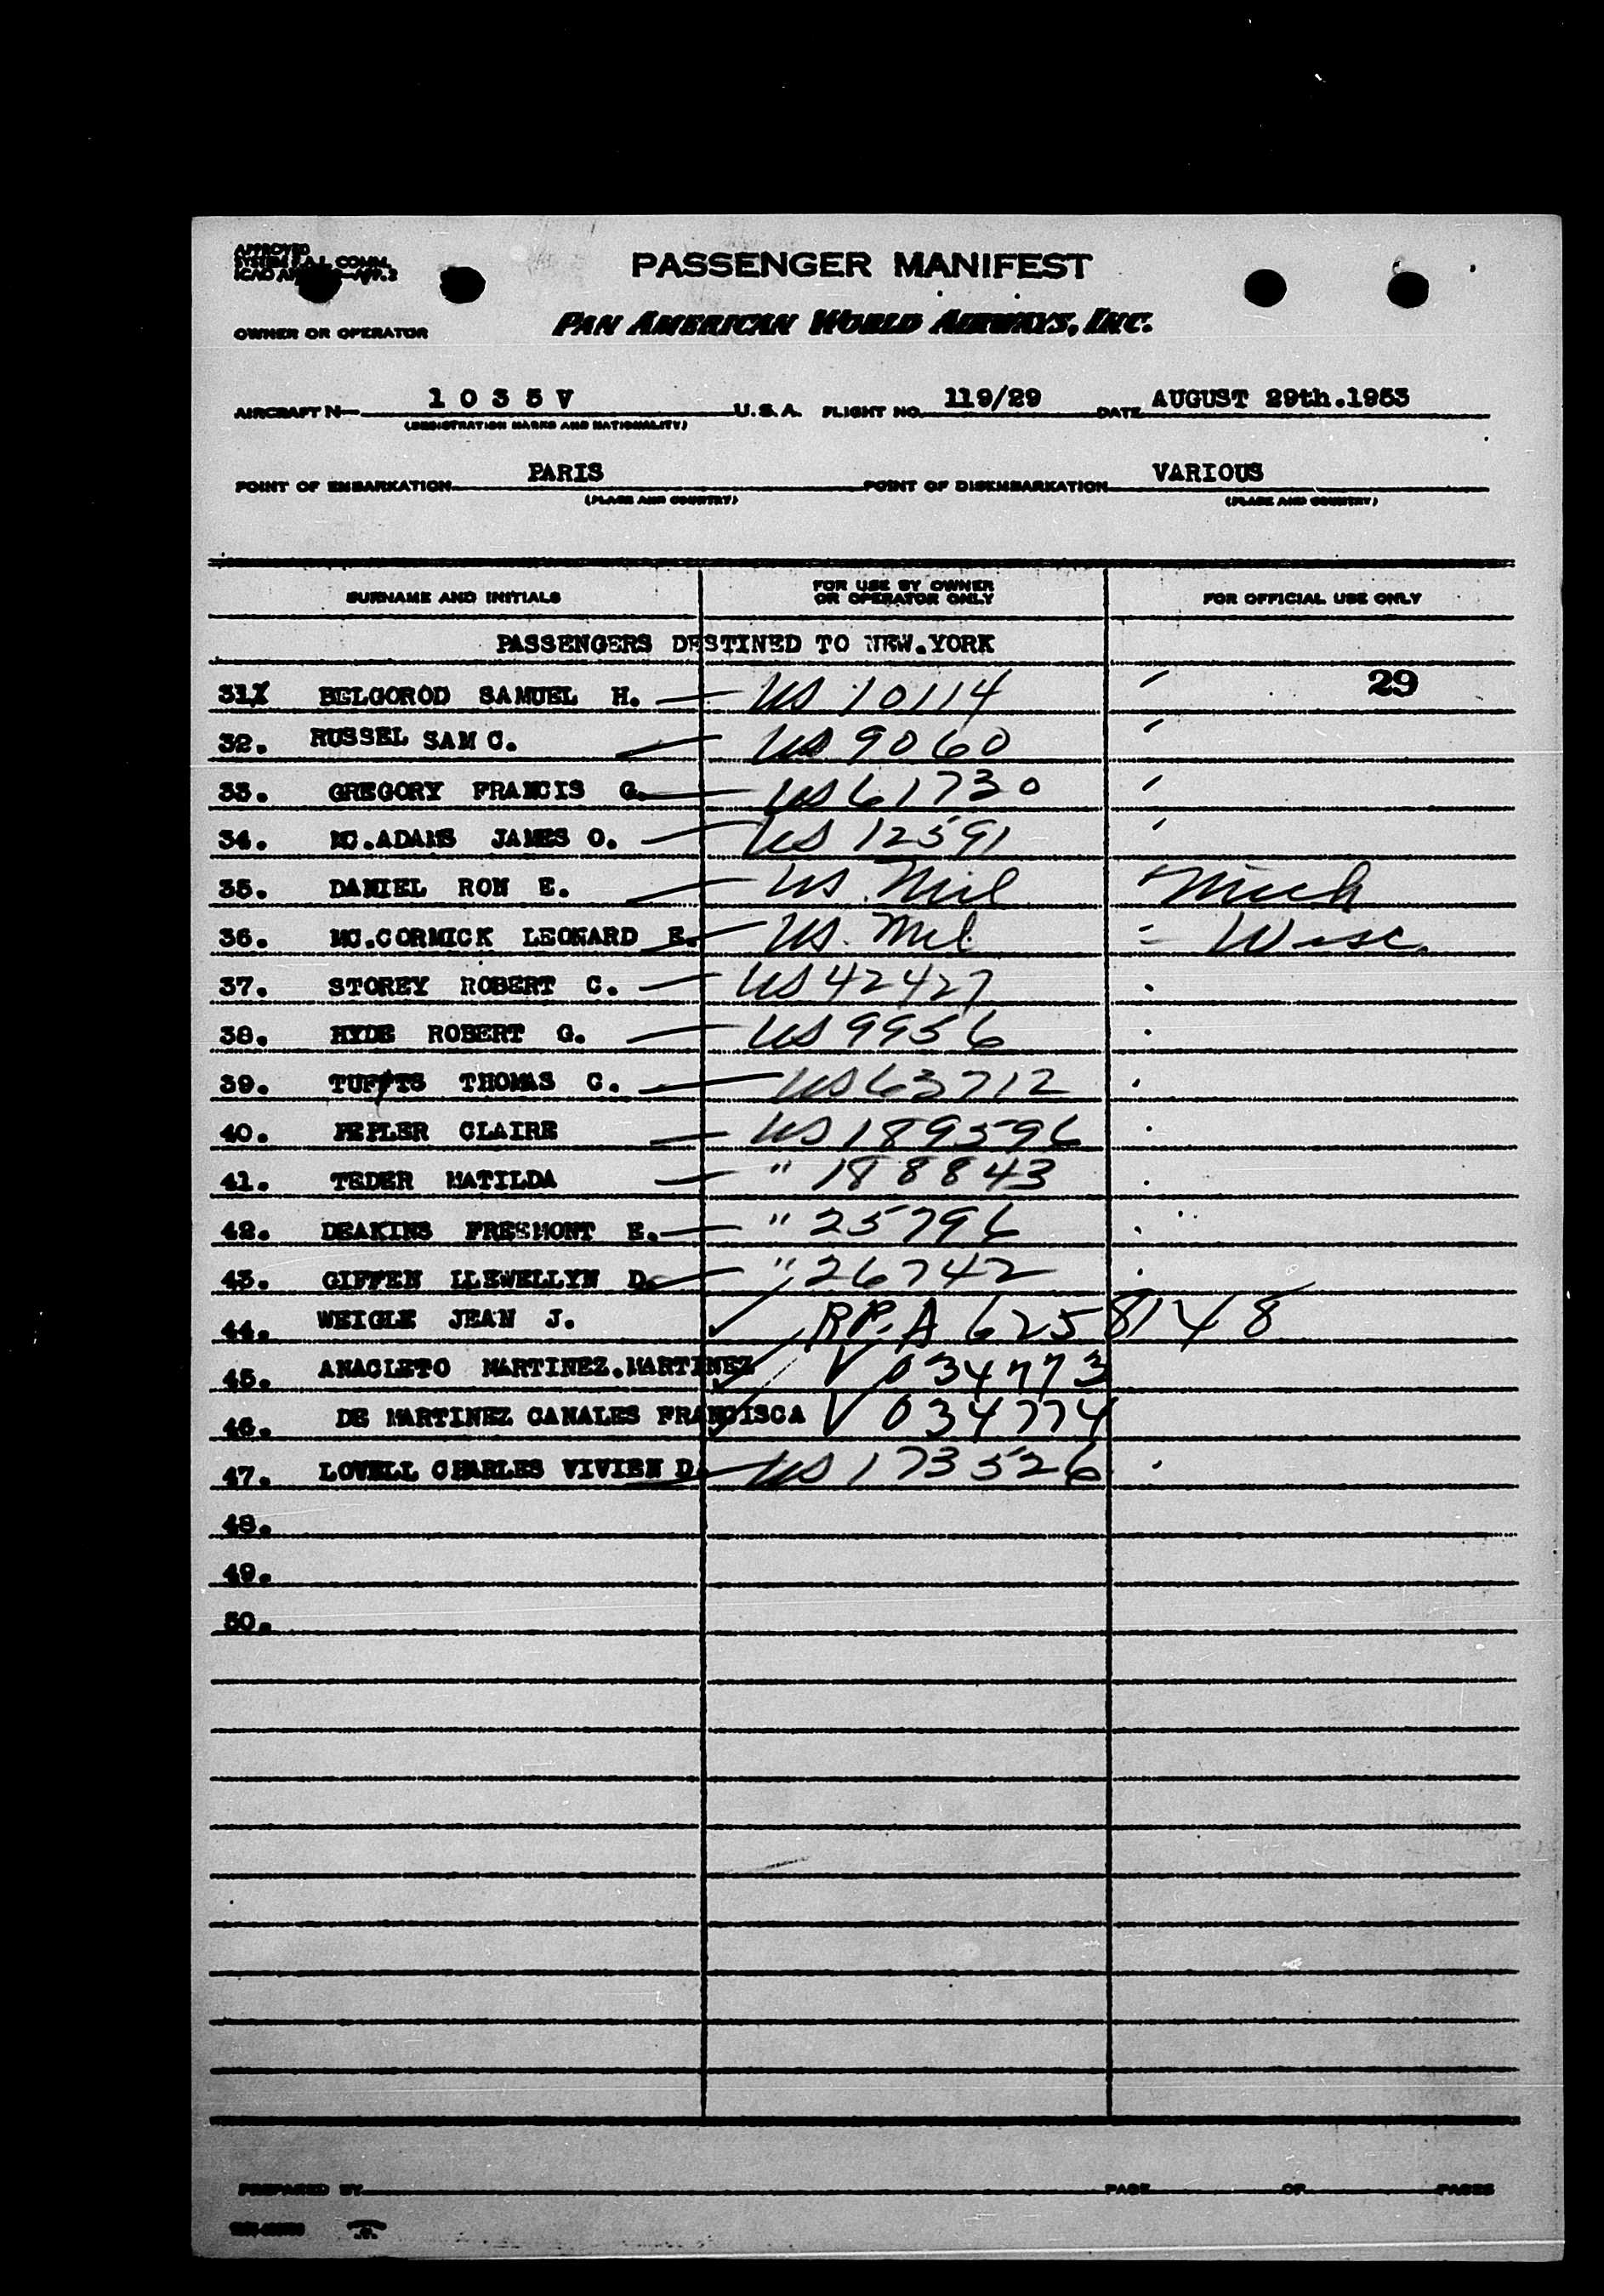 APPROVED
SYSTEM F.A.L. COMM.
PASSENGER MANIFEST
OWNER OR OPERATOR PAN AMERICAN WORLD AIRWAYS, INC.
AIRCRAFT N- 1 0 3 5 V U.S.A. FLIGHT NO. 119/29 DATE AUGUST 29th.1953
(REGISTRATION MARKS AND NATIONALITY)
POINT OF EMBARKATION PARIS POINT OF DISEMBARKATION VARIOUS
(PLACE AND COUNTRY) (PLACE AND COUNTRY)
SURNAME AND INITIALS FOR USE BY OWNER OR OPERATOR ONLY FOR OFFICIAL USE ONLY
PASSENGERS DESTINED TO NEW.YORK
31. BELGOROD SAMUEL H. US 10114 29
32. RUSSEL SAM C. US 9060
33. GREGORY FRANCIS G. US 61730
34. MC.ADAMS JAMES O. US 12591
35. DANIEL RON E. US. Mil Mich
36. MC.CORMICK LEONARD E. US. Mil Wisc.
37. STOREY ROBERT C. US 42427
38. HYDE ROBERT G. US 9956
39. TUFTS THOMAS C. US 63712
40. PEPLER CLAIRE US 189596
41. TEDER MATILDA " 188843
42. DEAKINS FREEMONT E. " 25796
43. GIFFEN LLEWELLYN D. " 26742
44. WEIGLE JEAN J. RP-A 6258148
45. ANACLETO MARTINEZ.MARTINEZ V 034773
46. DE MARTINEZ CANALES FRANCISCA V 034774
47. LOVELL CHARLES VIVIEN D. US 173526
48.
49.
50.
PREPARED BY PAGE OF PAGES